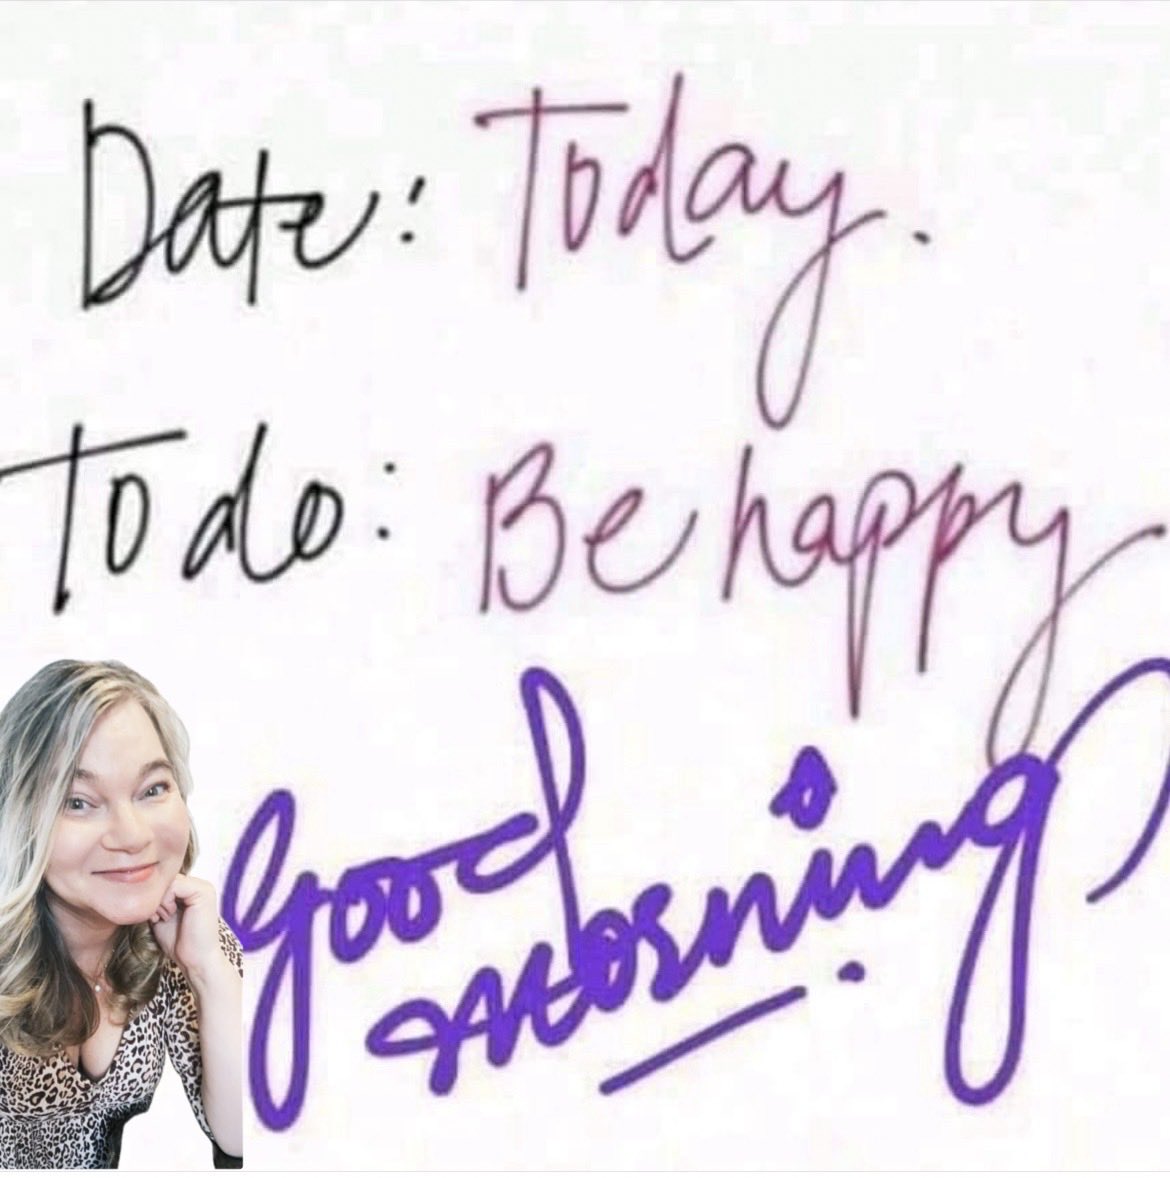 Date: Today.
To do: Be happy
Good
Morning.